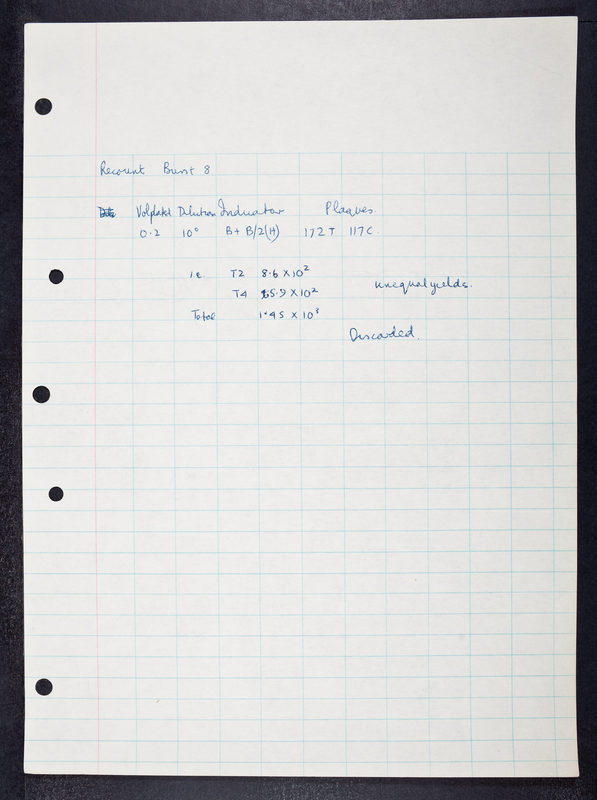 Recount Burst 8
Vol plated Dilution Indicator Plaques.
0.2 10⁰ B+ B/2(H) 172 T 117 C.
i.e T2 8.6 × 10²
T4 5.9 × 10² unequal yields.
Total 1.45 × 10³
Discarded.